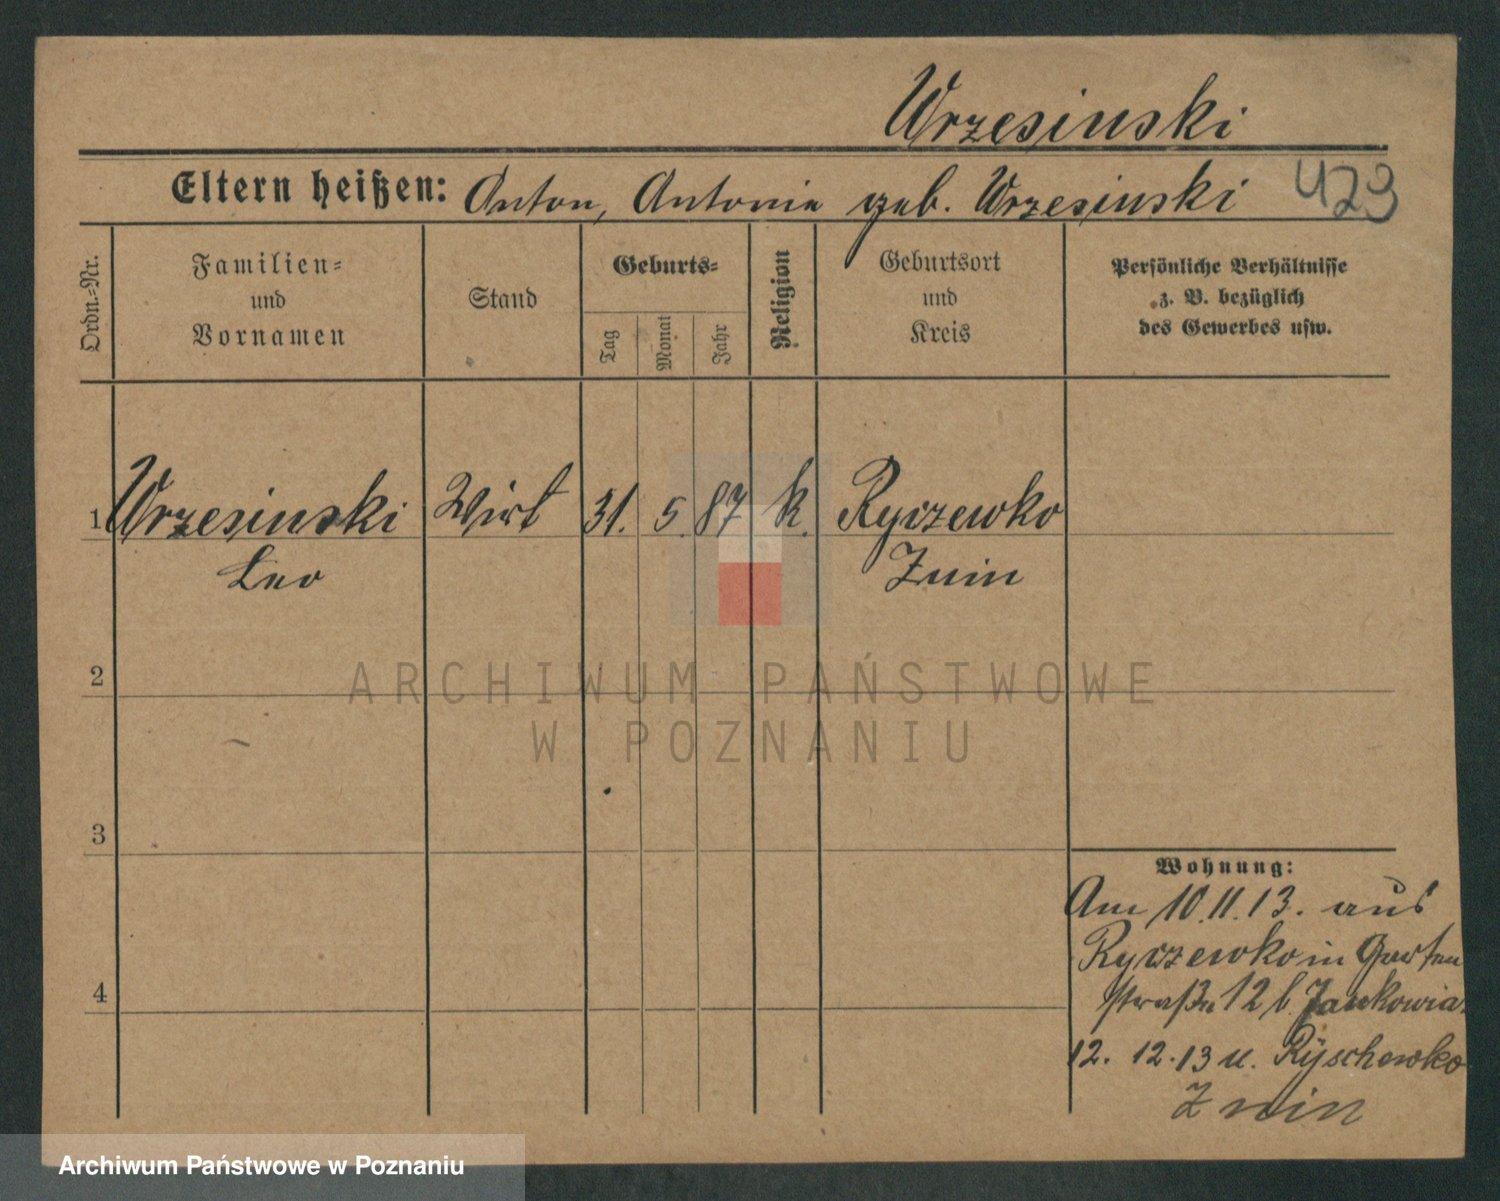 Wrzesinski
Eltern heißen: Anton, Antonie geb. Wrzesinski 423
Ordn.-Nr.
Familien-
und
Vornamen
Stand
Geburts-
Tag
Monat
Jahr
Religion
Geburtsort
und
Kreis
Persönliche Verhältnisse
z. B. bezüglich
des Gewerbes usw.
1 Wrzesinski Wirt 31. 5. 87 k. Ryczewko
Leo Znin
2
ARCHIWUM PAŃSTWOWE
W POZNANIU
3
Wohnung:
Am 10.11.13. aus
Ryczewko in Garten
straße 12 b. Jankowia.
4
12. 12.13 u. Ryschewko
Znin
Archiwum Państwowe w Poznaniu